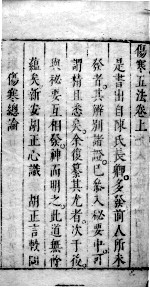 傷寒五法卷上
是書出自陳氏長卿多發前人所未
發者其辨別諸證已叅入秘要中可
謂精且悉矣余復纂其尤者次于後
與祕要互相發神而明之此道無餘
蘊矣新安胡正心識 胡正言較閱
傷寒總論